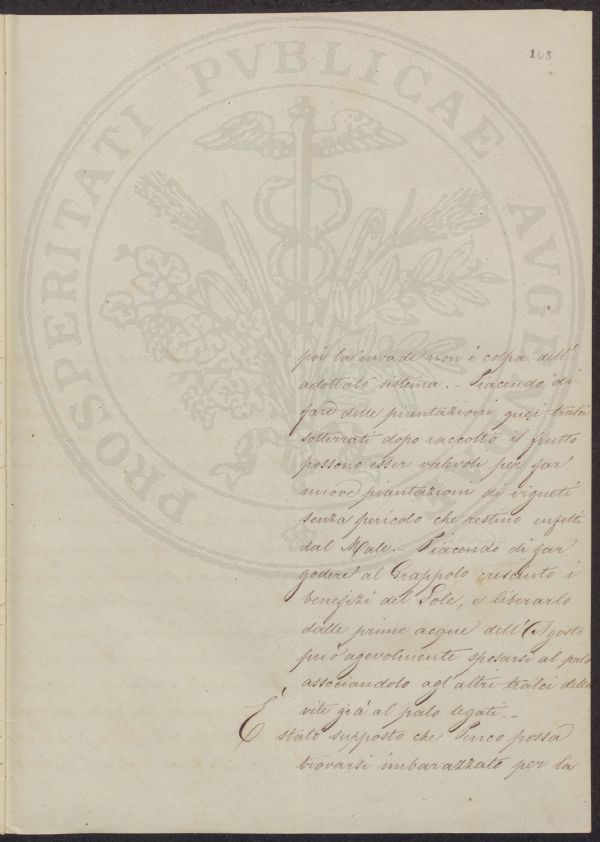 168
PROSPERITATI PVBLICAE AVGENDAE
poi la invade non è colpa dell'
adottato sistema. - Piacendo di
fare delle piantazioni, quei tralci
sotterrati dopo raccolto il frutto
possono esser valevoli per far
nuove piantazioni di vigneti
senza pericolo che restino infetti
dal Male. - Piacendo di far
godere al Grappolo cresciuto i
benefizi del Sole, e liberarlo
dalle prime acque dell'Agosto
può agevolmente sposarsi al palo
associandolo agl'altri tralci della
vite già al palo legati. -
È stato supposto che possa
trovarsi imbarazzato per la